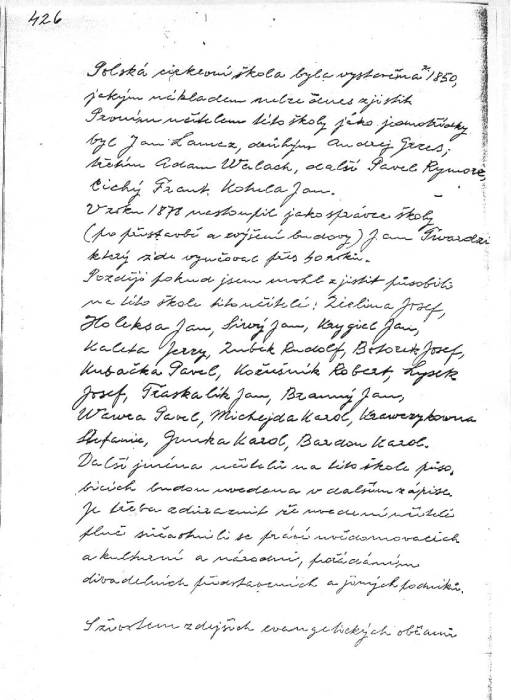 426
Polská církevní škola byla vystavěna r. 1850,
jakým nákladem nelze dnes zjistit
Prvním učitelem této školy jako jednotřídky
byl Jan Lamcz, druhým Andrej Grzes;
třetím Adam Walach, další Pavel Rymorz,
Cichý Frant. Kohela Jan.
V roku 1878 nastoupil jako správce školy
(po přístavbě a zvýšení budovy) Jan Twardzi
který zde vyučoval přes roků.
Později pokud jsem mohl zjistit působili
na této škole tito učitelé: Zielina Josef,
Holeksa Jan, Siwý Jan, Krygiel Jan,
Kaleta Jerzy, Zubek Rudolf, Botorek Josef,
Kubačka Pavel, Kożuśnik Robert, Lysek
Josef, Třaskalik Jan, Branný Jan,
Wawra Pavel, Michejda Karol, Krawczykowna
Stefanie, Gunka Karol, Bardon Karol.
Další jména učitelů na této škole půso-
bících budou uvedena v dalším zápise.
Je třeba zdůraznit že uvedení učitelé
plně súčastnili se prací uvědomovacích
a kulturní a národní, pořádáním
divadelních představeních a jiných podniků.
S životem zdejších evangelických občanů